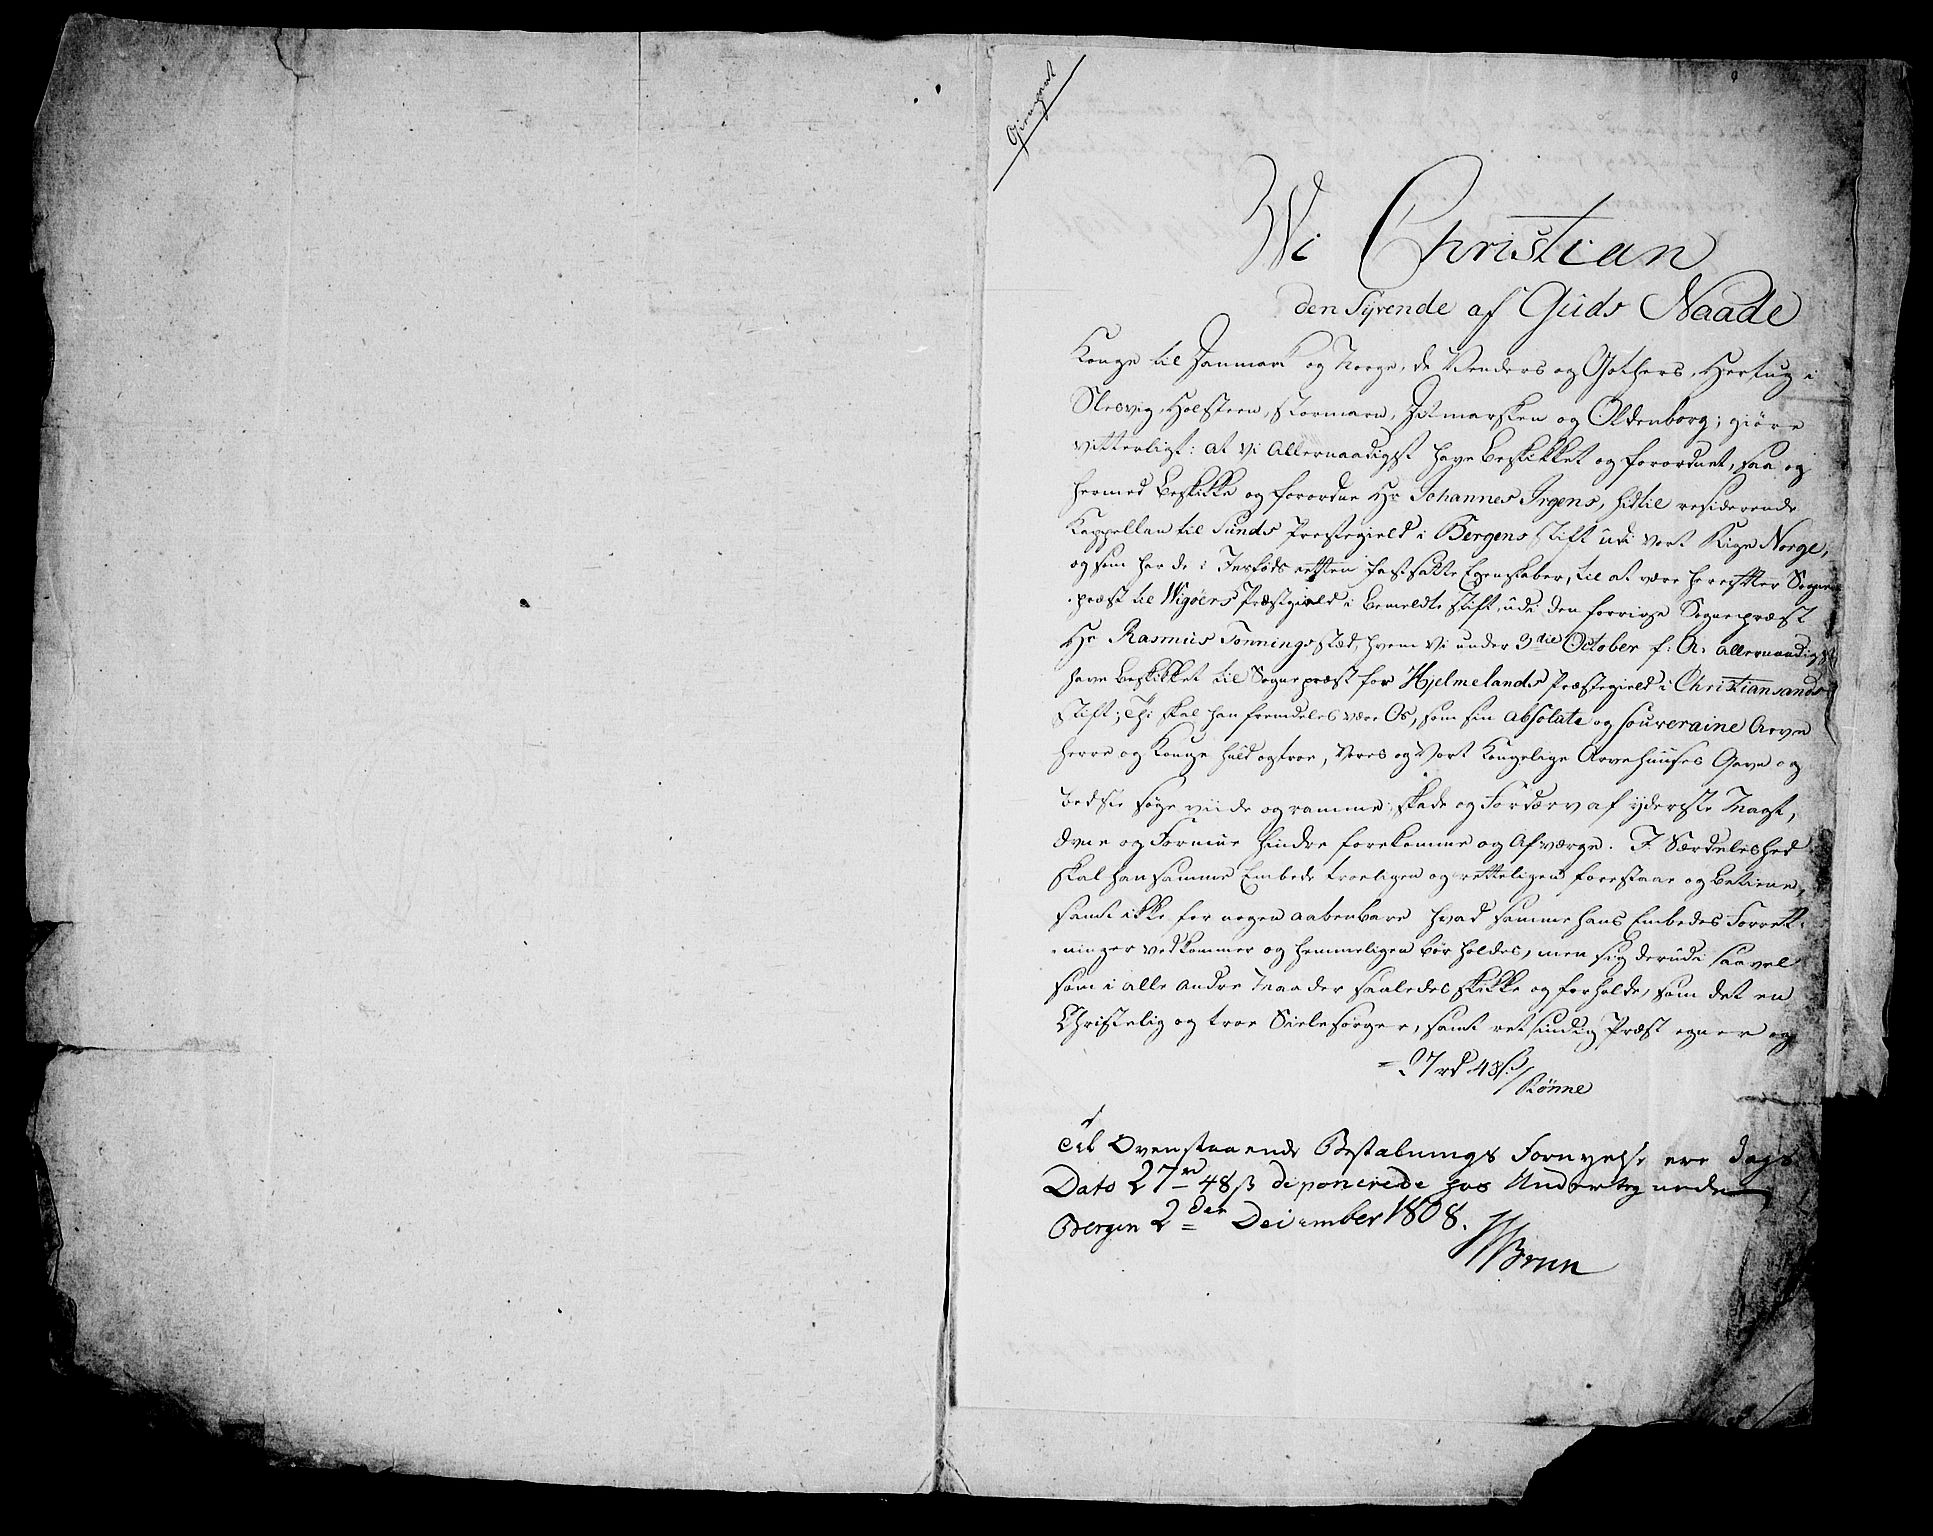 Gienpart
Wi Christian
den Syvende af Guds Naade
Konge til Danmark og Norge, de Venders og Gothers, Hertug i
Slesvig, Holsteen, Stormarn, Ditmarsken og Oldenborg; giöre
vitterligt: at Vi Allernaadigst have Beskikket og forordnet, saa og
hermed Beskikke og forordne Hr Johannes Irgens, hidtil residerende
Kappellan til Sunds Præstegield i Bergens Stift udi vort Rige Norge,
og som har de i Indföds retten fastsatte Egenskaber, til at være herefter Sogne-
præst til Wigöers Præstgield i bemeldte Stift, udi den forrige Sognepræst
Hr Rasmus Tonnings stæd, hvem Vi under 3die October f: A: allernaadigst
have beskikket til Sognepræst for Hjelmelands Præstegield i Christiansands
Stift; Thi skal han fremdeles være Os, som sin absolute og souveraine Arve
Herre og Konge huld og troe, Vores og Vort Kongelige Arvehuuses Gavn og
Bedste söge viide og ramme, skade og Fordærv af yderste Magt,
Evne og Formue hindre forekomme og Afværge. I Særdeleshed
skal han samme Embede troeligen og retteligen forestaae og betiene,
samt ikke for nogen aabenbare hvad samme hans Embedes Forrett-
ninger vedkommer og hemmeligen bör holdes, men sig derudi saavel
som i alle andre Maader saaledes skikke og forholde, som det en
Christelig og troe Sielesörger, samt retsindig Præst egner og
27 rd 48 ß / Rönne
Til Ovenstaaende Bestalnings Fornyelse ere Dags
Dato 27 rd 48 ß deponerede hos Undertegnede
Bergen 2den December 1808.
Brun